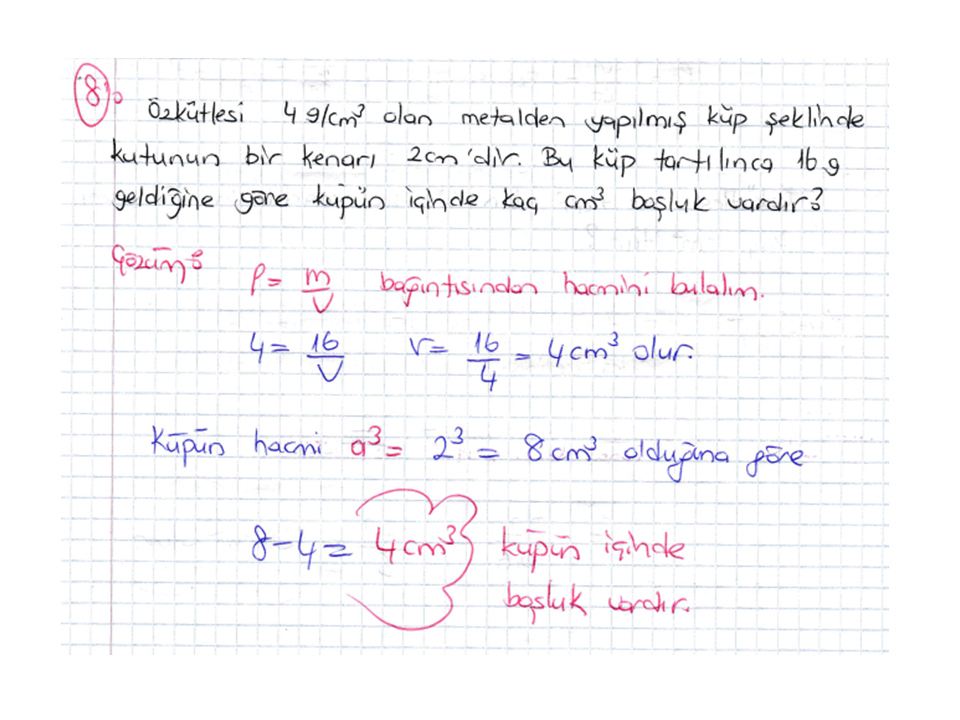 8) Özkütlesi 4 g/cm³ olan metalden yapılmış küp şeklinde
kutunun bir kenarı 2cm'dir. Bu küp tartılınca 16 g
geldiğine göre küpün içinde kaç cm³ boşluk vardır?
Çözüm: ρ = m/V bağıntısından hacmini bulalım.
4 = 16/V V = 16/4 = 4 cm³ olur.
Küpün hacmi a³ = 2³ = 8 cm³ olduğuna göre
8-4 = 4 cm³ küpün içinde
boşluk vardır.